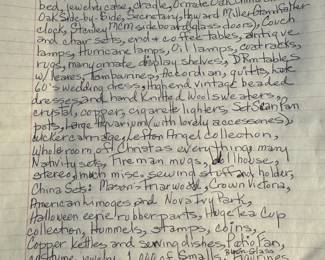 bed, jewelry case, cradle, Ornate Oak China
Oak Side-by-Side, Secretary, Howard Miller Grandfather
clock, Stanley MCM sideboard glass doors, Couch
and chair sets, end + cocktek tables, antique
lamps, Hurricane lamps, Oil lamps, coatracks,
rugs, many ornate display shelves, DRm tables
w/leaves, Tambourines, Accordian, quilts,
60's wedding dress, High end vintage beaded
dresses and hand Knitted Wool sweaters,
crystal, copper, cigarette lighters, Set Scan Pan
pots, Large Aquarium (with lovely accessories),
wicker carriage, Lefton Angel collection,
Whole room of Christmas everything many
Nativity sets, Fireman mugs, dollhouse,
stereo, much misc, sewing stuff and holder,
China Sets: Mason's Friarwood, Crown Victoria,
American Limoges and Nova Ivy Park,
Halloween eerie rubber parts, Huge Tea Cup
collection, Hummels, stamps, coins,
Copper kettles and serving dishes, Patio Fan,
costume jewelry, 1,000 of Smalls, Figurines